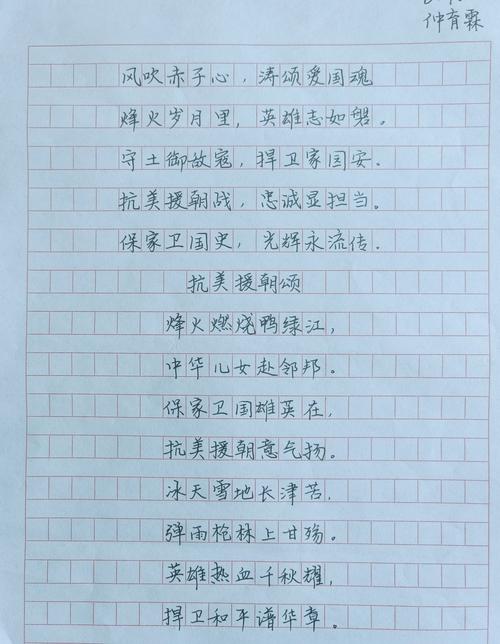 仲育霖
风吹赤子心，涛颂爱国魂
烽火岁月里，英雄志如磐。
守土御敌寇，捍卫家国安.
抗美援朝战，忠诚显担当。
保家卫国史，光辉永流传.
抗美援朝颂
烽火燃烧鸭绿江，
中华儿女赴邻邦。
保家卫国雄英在，
抗美援朝意气扬。
冰天雪地长津苦.
弹雨枪林上甘殇。
英雄热血千秋耀，
捍卫和平谱华章。